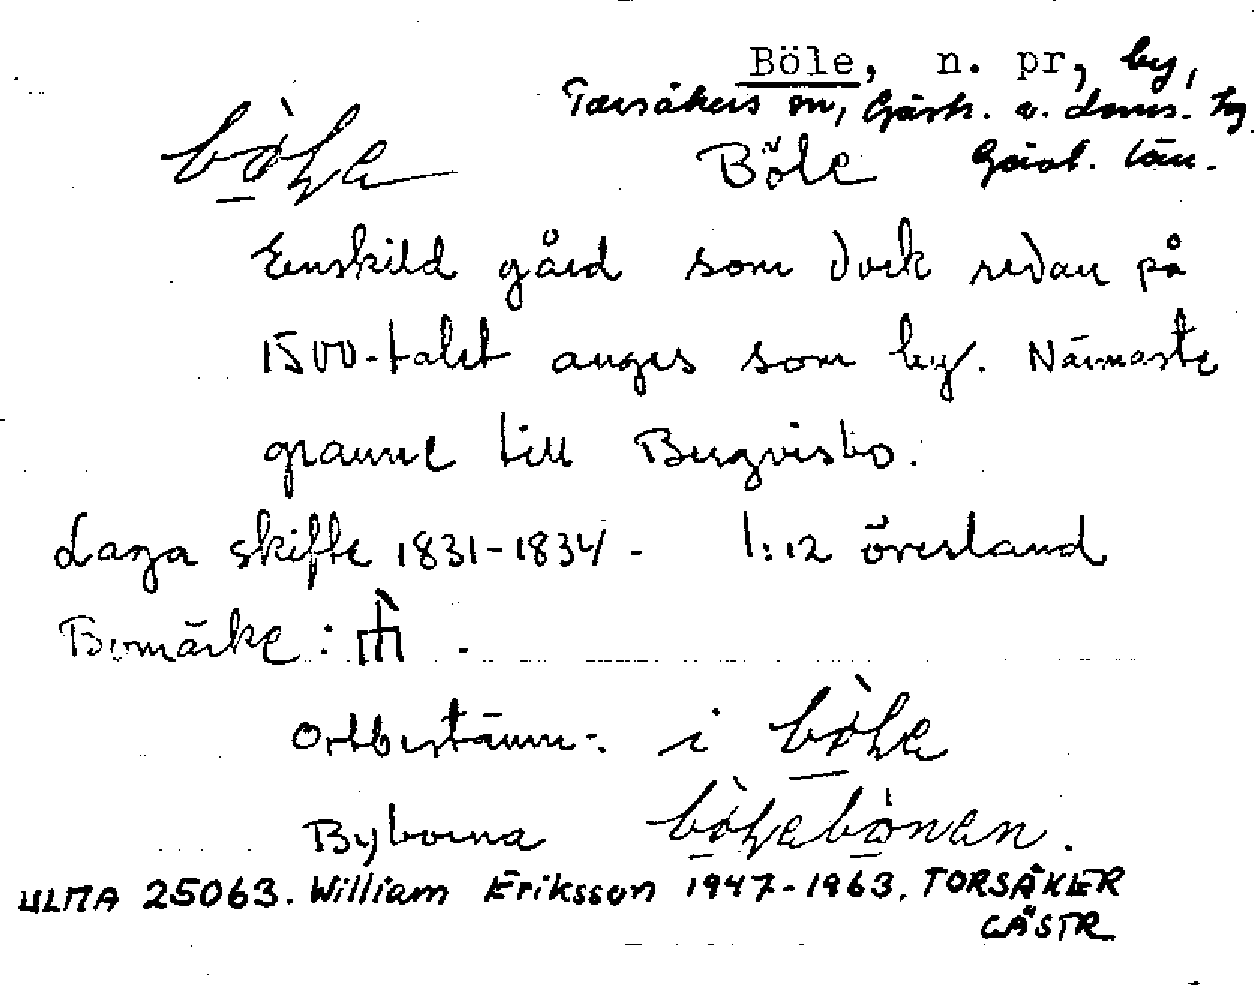 Böle, n. pr, by,
Torsåkers sn, Gästr. v. doms. hg
Gävl. län.
Böle
Enskild gård som dock redan på
1500-talet anges som by. Närmaste
granne till Bergvisbo.
Laga skifte 1831-1834 - 1:12 öresland
Bomärke:
Ortbestämn: i
Byborna
ULMA 25063. William Eriksson 1947-1963. TORSÅKER
GÄSTR